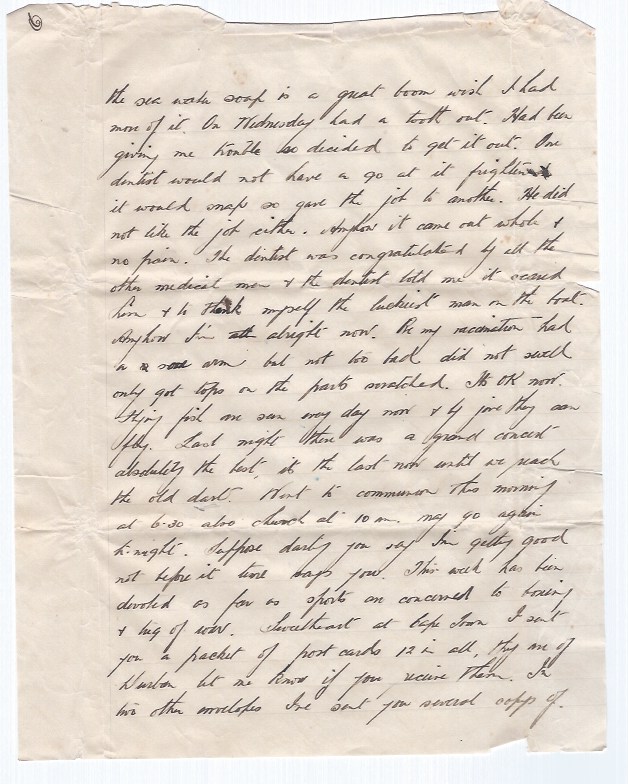 6
the sea water soap is a great boon wish I had
more of it. On Wednesday had a tooth out. Had been
giving me trouble so decided to get it out. One
dentist would not have a go at it frightened
it would snap so gave the job to another. He did
not like the job either. Anyhow it came out whole &
no pain. The dentist was congratulated by all the
other medical men & the dentist told me it scared
him & to think myself the luckiest man on the boat.
Anyhow I'm alright now. Re my vaccination had
a sore arm but not too bad did not swell
only got tops on the parts scratched. Its OK now.
Flying fish are seen every day now & by jove they can
fly. Last night there was a grand concert
absolutely the best, its the last now until we reach
the old dart. Went to communion this morning
at 6-30 also church at 10 am. may go again
to-night. Suppose darly you say I'm getting good
not before it time says you. This week has been
devoted as far as sports are concerned to boxing
& tug of war. Sweetheart at Cape Town I sent
you a packet of post cards 12 in all, they are of
Durban let me know if you receive them. In
two other envelopes I've sent you several copys of.